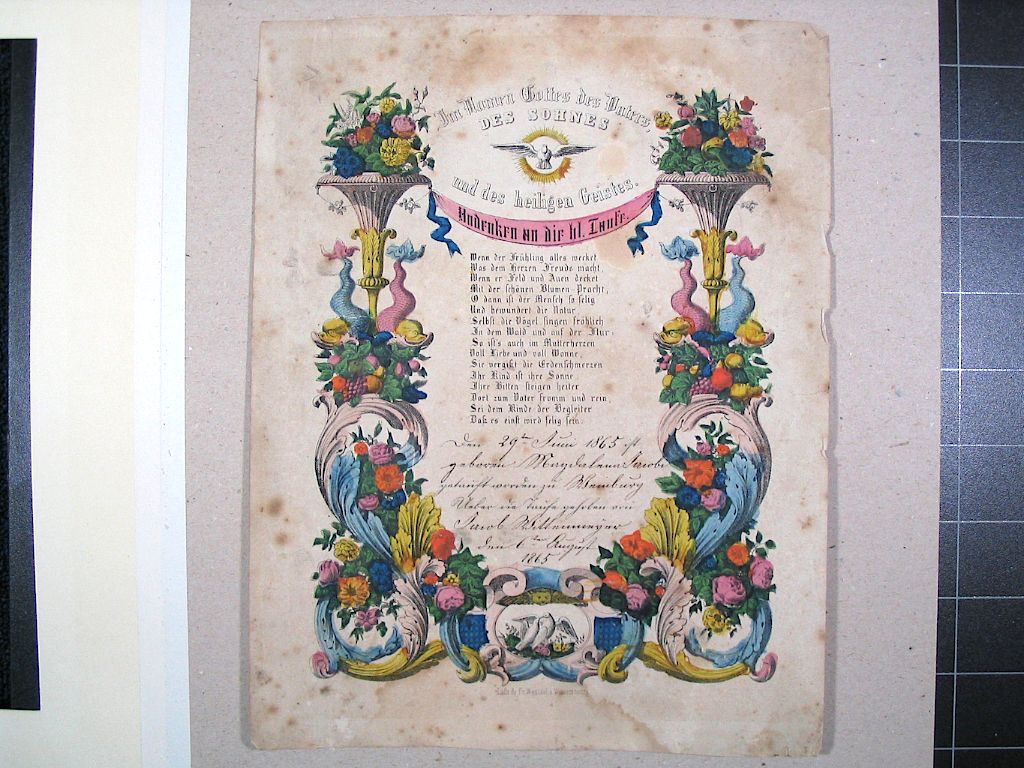 Im Namen Gottes des Vaters,
DES SOHNES
und des heiligen Geistes.
Andenken an die hl. Taufe.
Wenn der Frühling alles wecket
Was dem Herzen Freude macht,
Wenn er Feld und Auen decket
Mit der schönen Blumen-Pracht,
O dann ist der Mensch so selig
Und bewundert die Natur
Selbst die Vögel singen fröhlich
In dem Wald und auf der Flur:
So ist's auch im Mutterherzen
Voll Liebe und voll Wonne,
Sie vergißt die Erdenschmerzen
Ihr Kind ist ihre Sonne,
Ihre Bitten steigen heiter
Dort zum Vater fromm und rein,
Sei dem Kinde der Begleiter
Daß es einst wird selig sein.
Den 29ten Juni 1865 ist
geboren Magdalena Jacobi
getauft worden zu
Ueber die Taufe gehoben von
Jacob Wittenmeyer
den 6ten August
1865
Lith. de Fr. Wentzel à Wissembourg